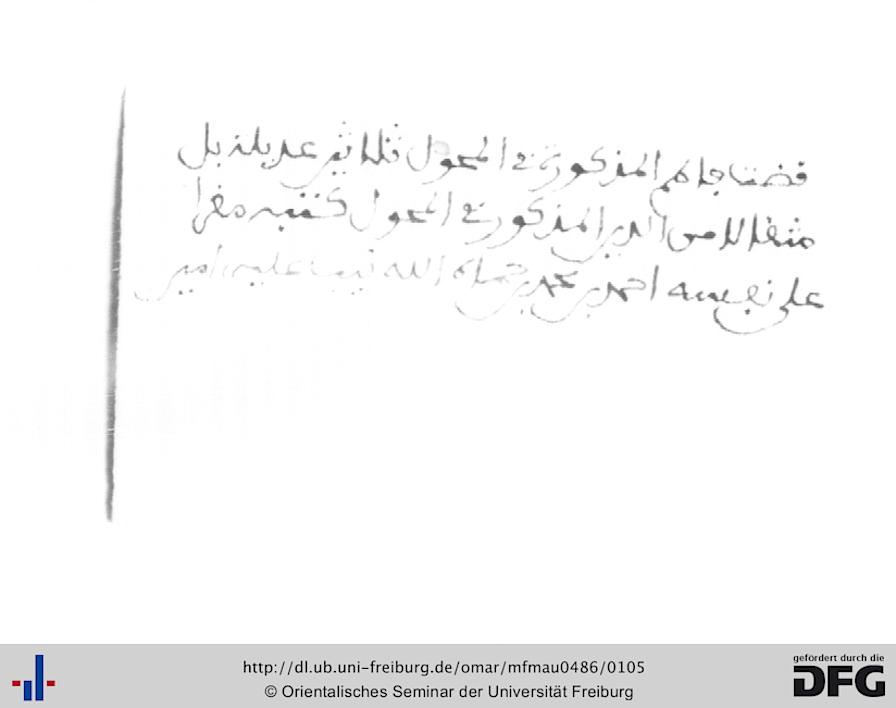 المذكور في المحول ثلاثين عديلة بل
من الدين المذكور في المحول كتبه مقرا
على نفسه احمد بن محمد بن حماه الله تيب عليه امين
http://dl.ub.uni-freiburg.de/omar/mfmau0486/0105
© Orientalisches Seminar der Universität Freiburg
gefördert durch die
DFG